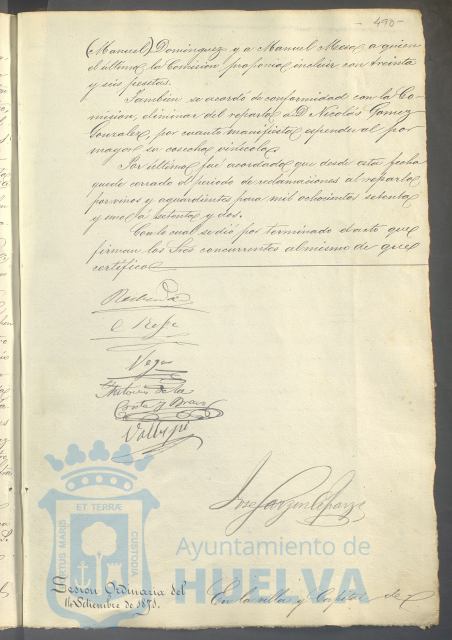 - 490 -
(Manuel) Dominguez y a Manuel Mesa, a quien
el ultimo la Comision proponia incluir con treinta
y seis pesetas.
Tambien se acordó de conformidad con la Co-
mision, eliminar del reparto a D. Nicolás Gomez
Gonzalez, por cuanto manifiesta espender al por
mayor su cosecha vinicola.
Por último fué acordado que desde esta fecha
quede cerrado el periodo de reclamaciones al reparto
por vinos y aguardientes para mil ochocientos setenta
y uno a setenta y dos.
Con lo cual se dió por terminado el acto que
firman los Sres concurrentes al mismo de que
certifico
Vega
Antonio de la
Corte y Bravo
Vallejo
ET TERRÆ
PORTUS MARIS
CUSTODIA
Ayuntamiento de
HUELVA
Sesion Ordinaria del
14 Setiembre de 1871.
En la villa y Capital de